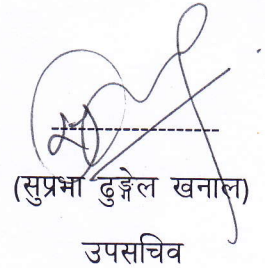 (सुप्रभा ढुङ्गेल खनाल)
उपसचिव